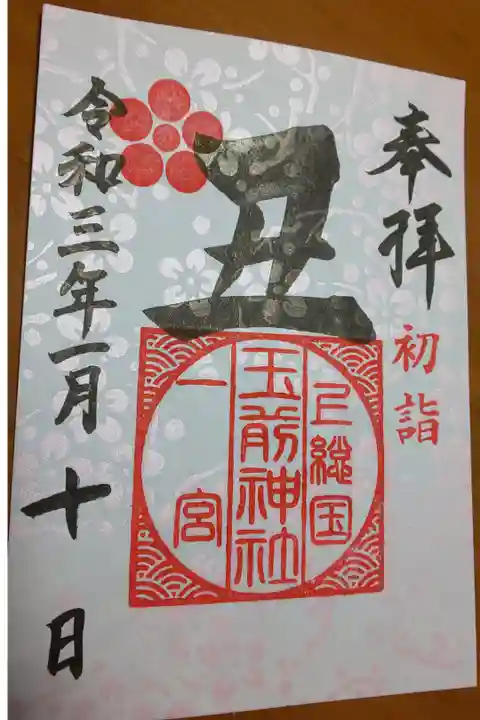 奉拝
初詣
丑
上総国
玉前神社
一宮
令和三年一月十日